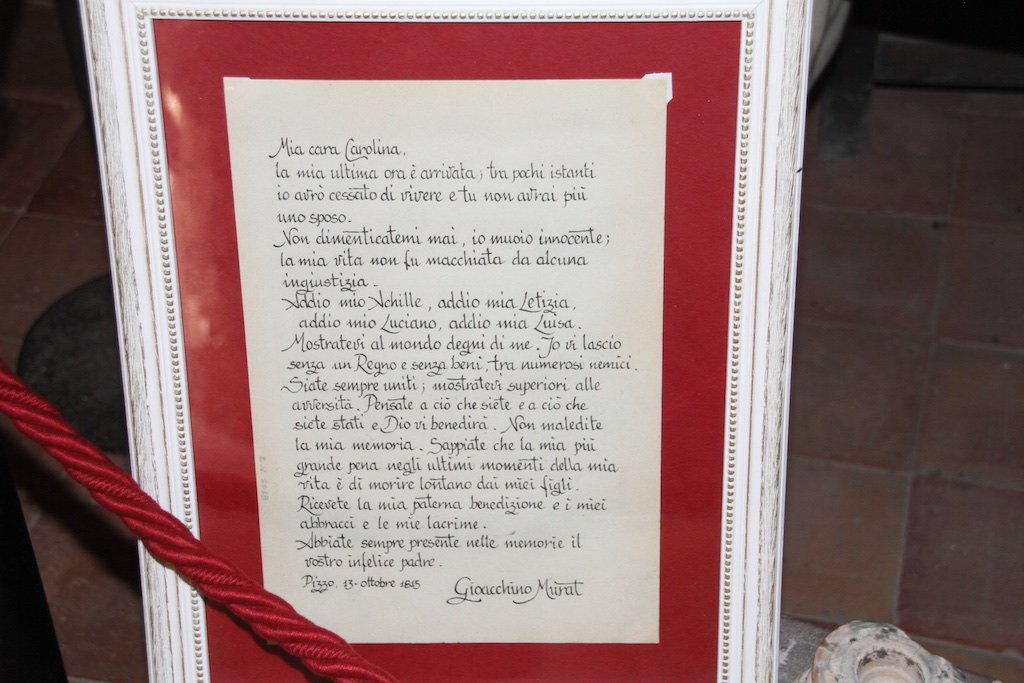 Mia cara Carolina,
la mia ultima ora è arrivata; tra pochi istanti
io avrò cessato di vivere e tu non avrai più
uno sposo.
Non dimenticatemi mai, io muoio innocente;
la mia vita non fu macchiata da alcuna
ingiustizia.
Addio mio Achille, addio mia Letizia,
addio mio Luciano, addio mia Luisa.
Mostratevi al mondo degni di me. Io vi lascio
senza un Regno e senza beni, tra numerosi nemici.
Siate sempre uniti; mostratevi superiori alle
avversità. Pensate a ciò che siete e a ciò che
siete stati e Dio vi benedirà. Non maledite
la mia memoria. Sappiate che la mia più
grande pena negli ultimi momenti della mia
vita è di morire lontano dai miei figli.
Ricevete la mia paterna benedizione e i miei
abbracci e le mie lacrime.
Abbiate sempre presente nelle memorie il
vostro infelice padre.
Pizzo, 13- ottobre 1815
Gioacchino Murat